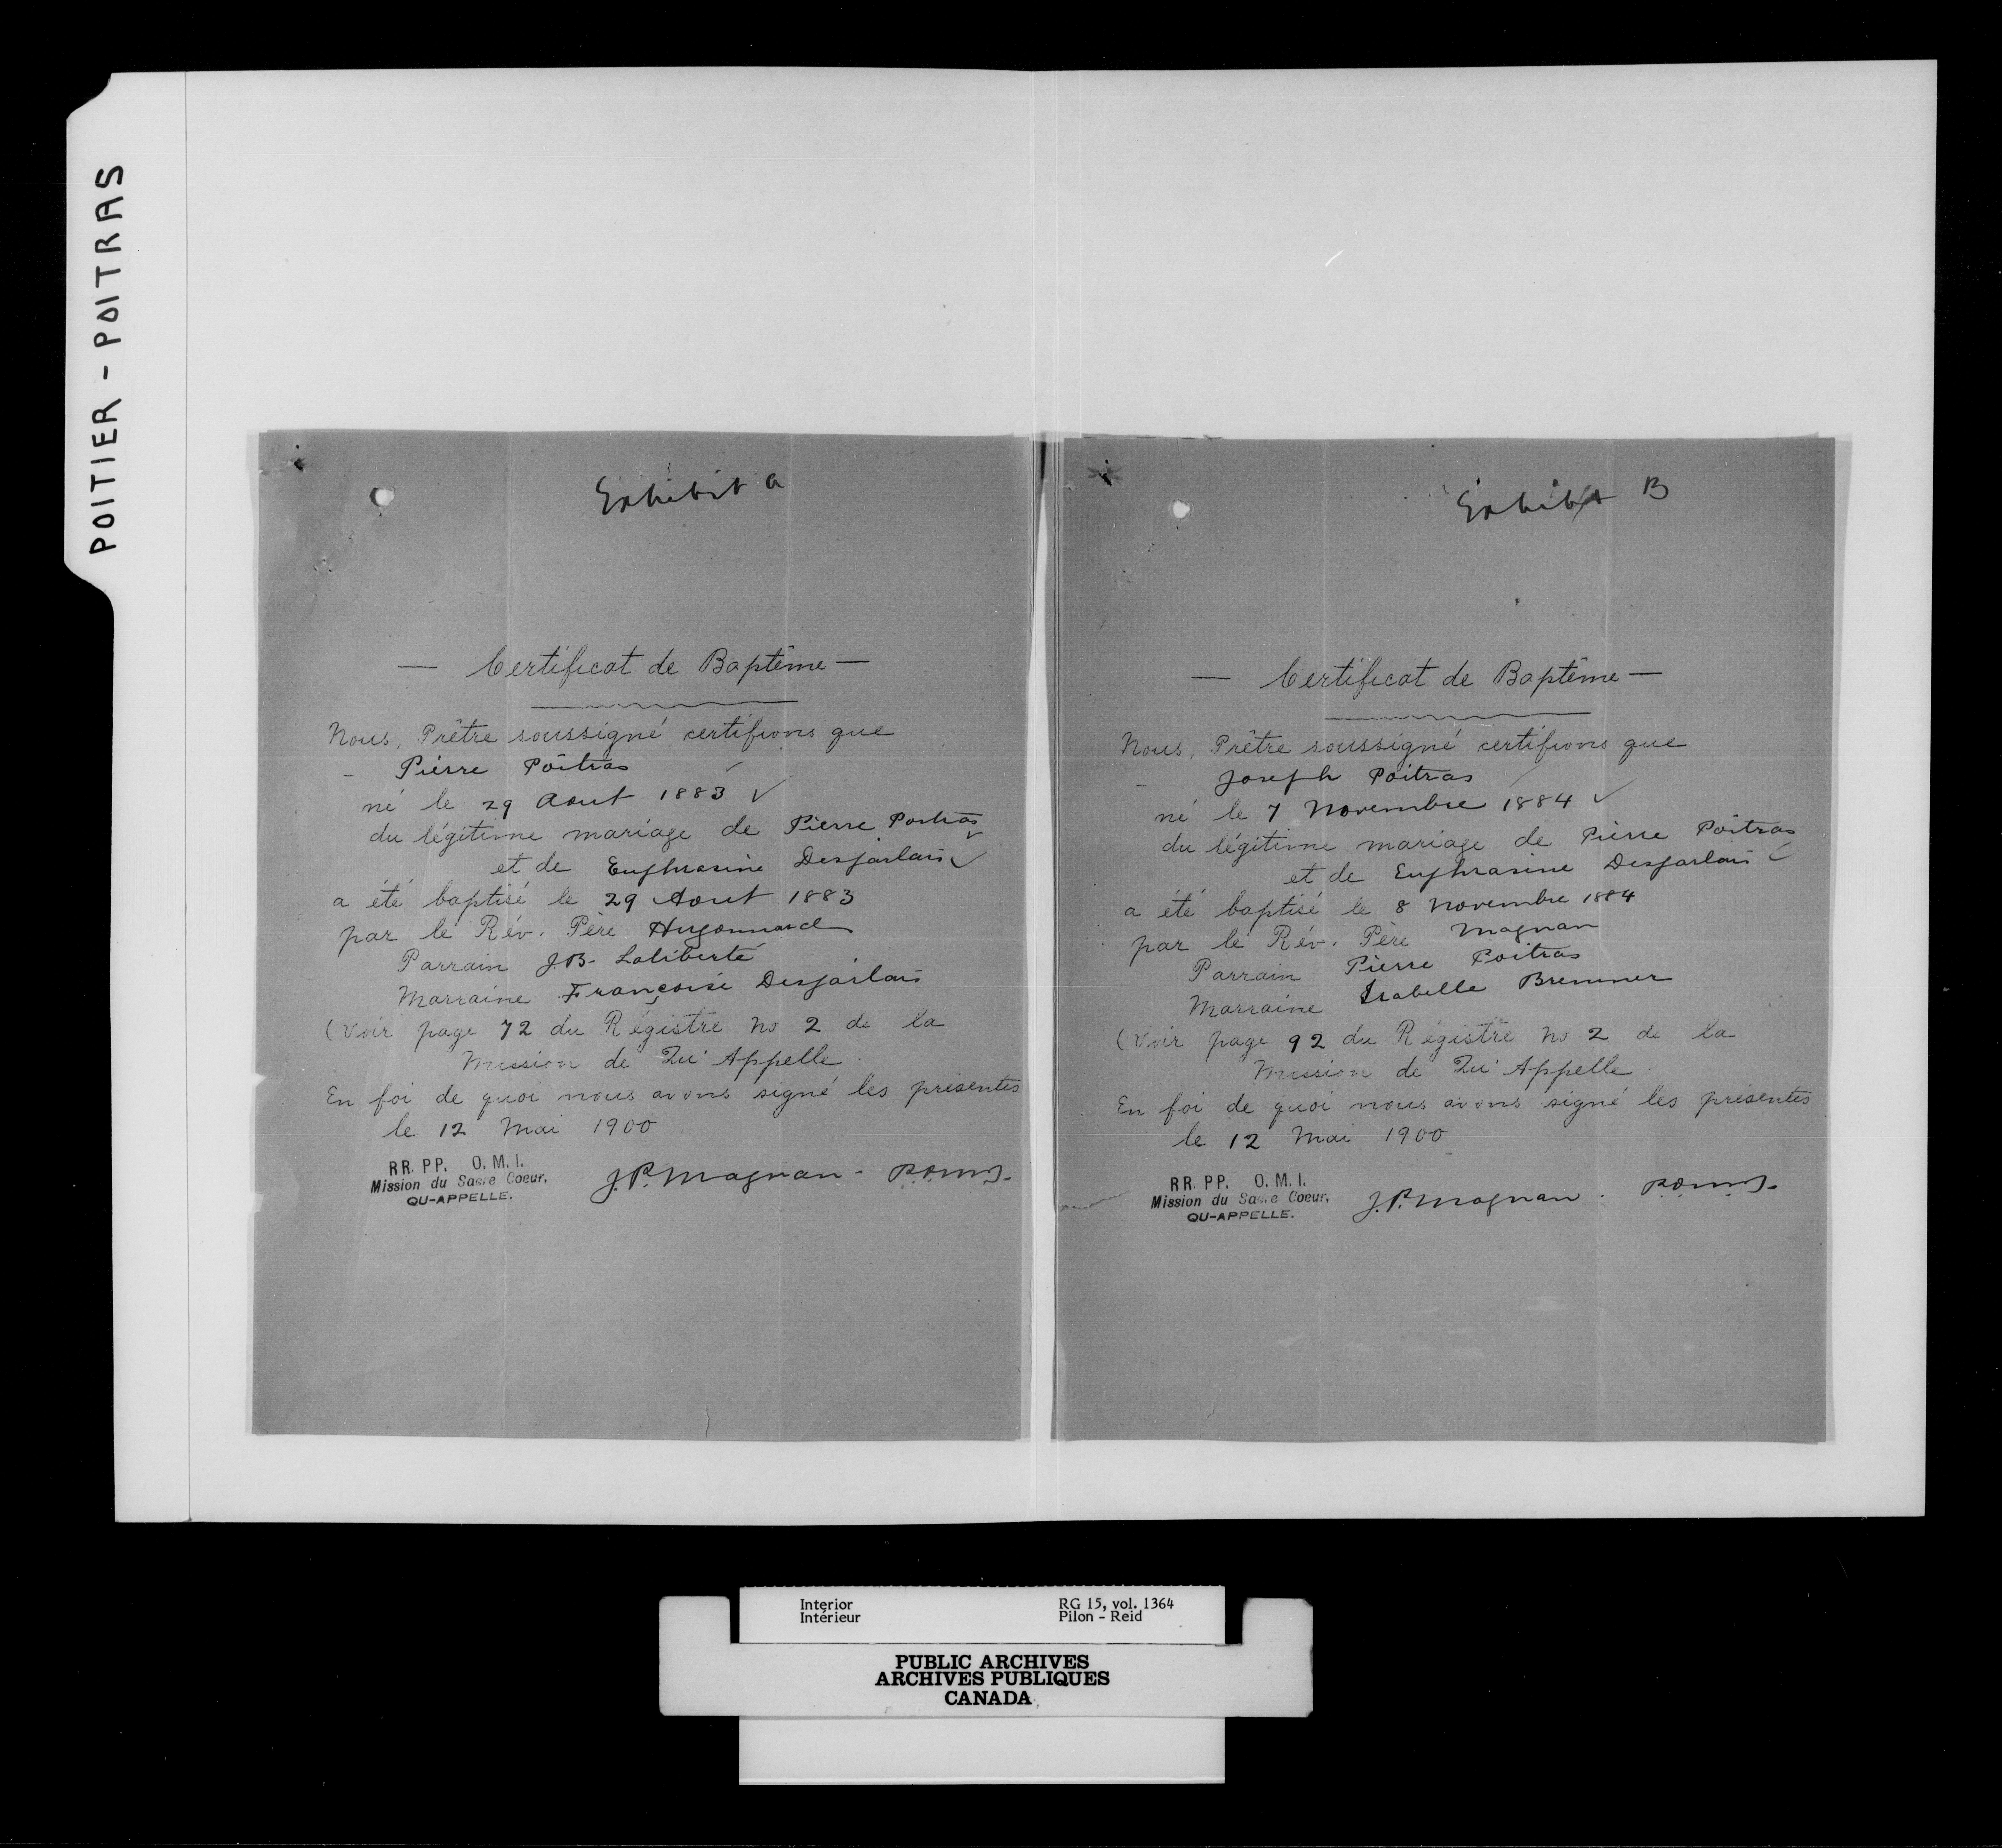 POITIER - POITRAS
Exhibit a
— Certificat de Baptême —
Nous, Prêtre soussigné certifions que
- Pierre Poitras
né le 29 Aout 1883 ✓
du légitime mariage de Pierre Poitras ✓
et de Euphrasine Desjarlais ✓
a été baptisé le 29 Aout 1883
par le Rév. Père Hugonnard
Parrain J.B. Laliberté
Marraine Françoise Desjarlais
(Voir page 72 du Régistre No 2 de la
Mission de Qu'Appelle
En foi de quoi nous avons signé les présentes
le 12 Mai 1900
RR. PP. O. M. I.
Mission du Sacre Coeur,
QU-APPELLE.
J.P. Magnan - P.O.M.I.
Exhibit B
— Certificat de Baptême —
Nous, Prêtre soussigné certifions que
- Joseph Poitras
né le 7 Novembre 1884 ✓
du légitime mariage de Pierre Poitras
et de Euphrasine Desjarlais ✓
a été baptisé le 8 Novembre 1884
par le Rév. Père Magnan
Parrain Pierre Poitras
Marraine Isabelle Bremner
(Voir page 92 du Régistre No 2 de la
Mission de Qu'Appelle
En foi de quoi nous avons signé les présentes
le 12 Mai 1900
RR. PP. O. M. I.
Mission du Sacre Coeur,
QU-APPELLE.
J.P. Magnan . P.O.M.I.
Interior
Intérieur
RG 15, vol. 1364
Pilon - Reid
PUBLIC ARCHIVES
ARCHIVES PUBLIQUES
CANADA